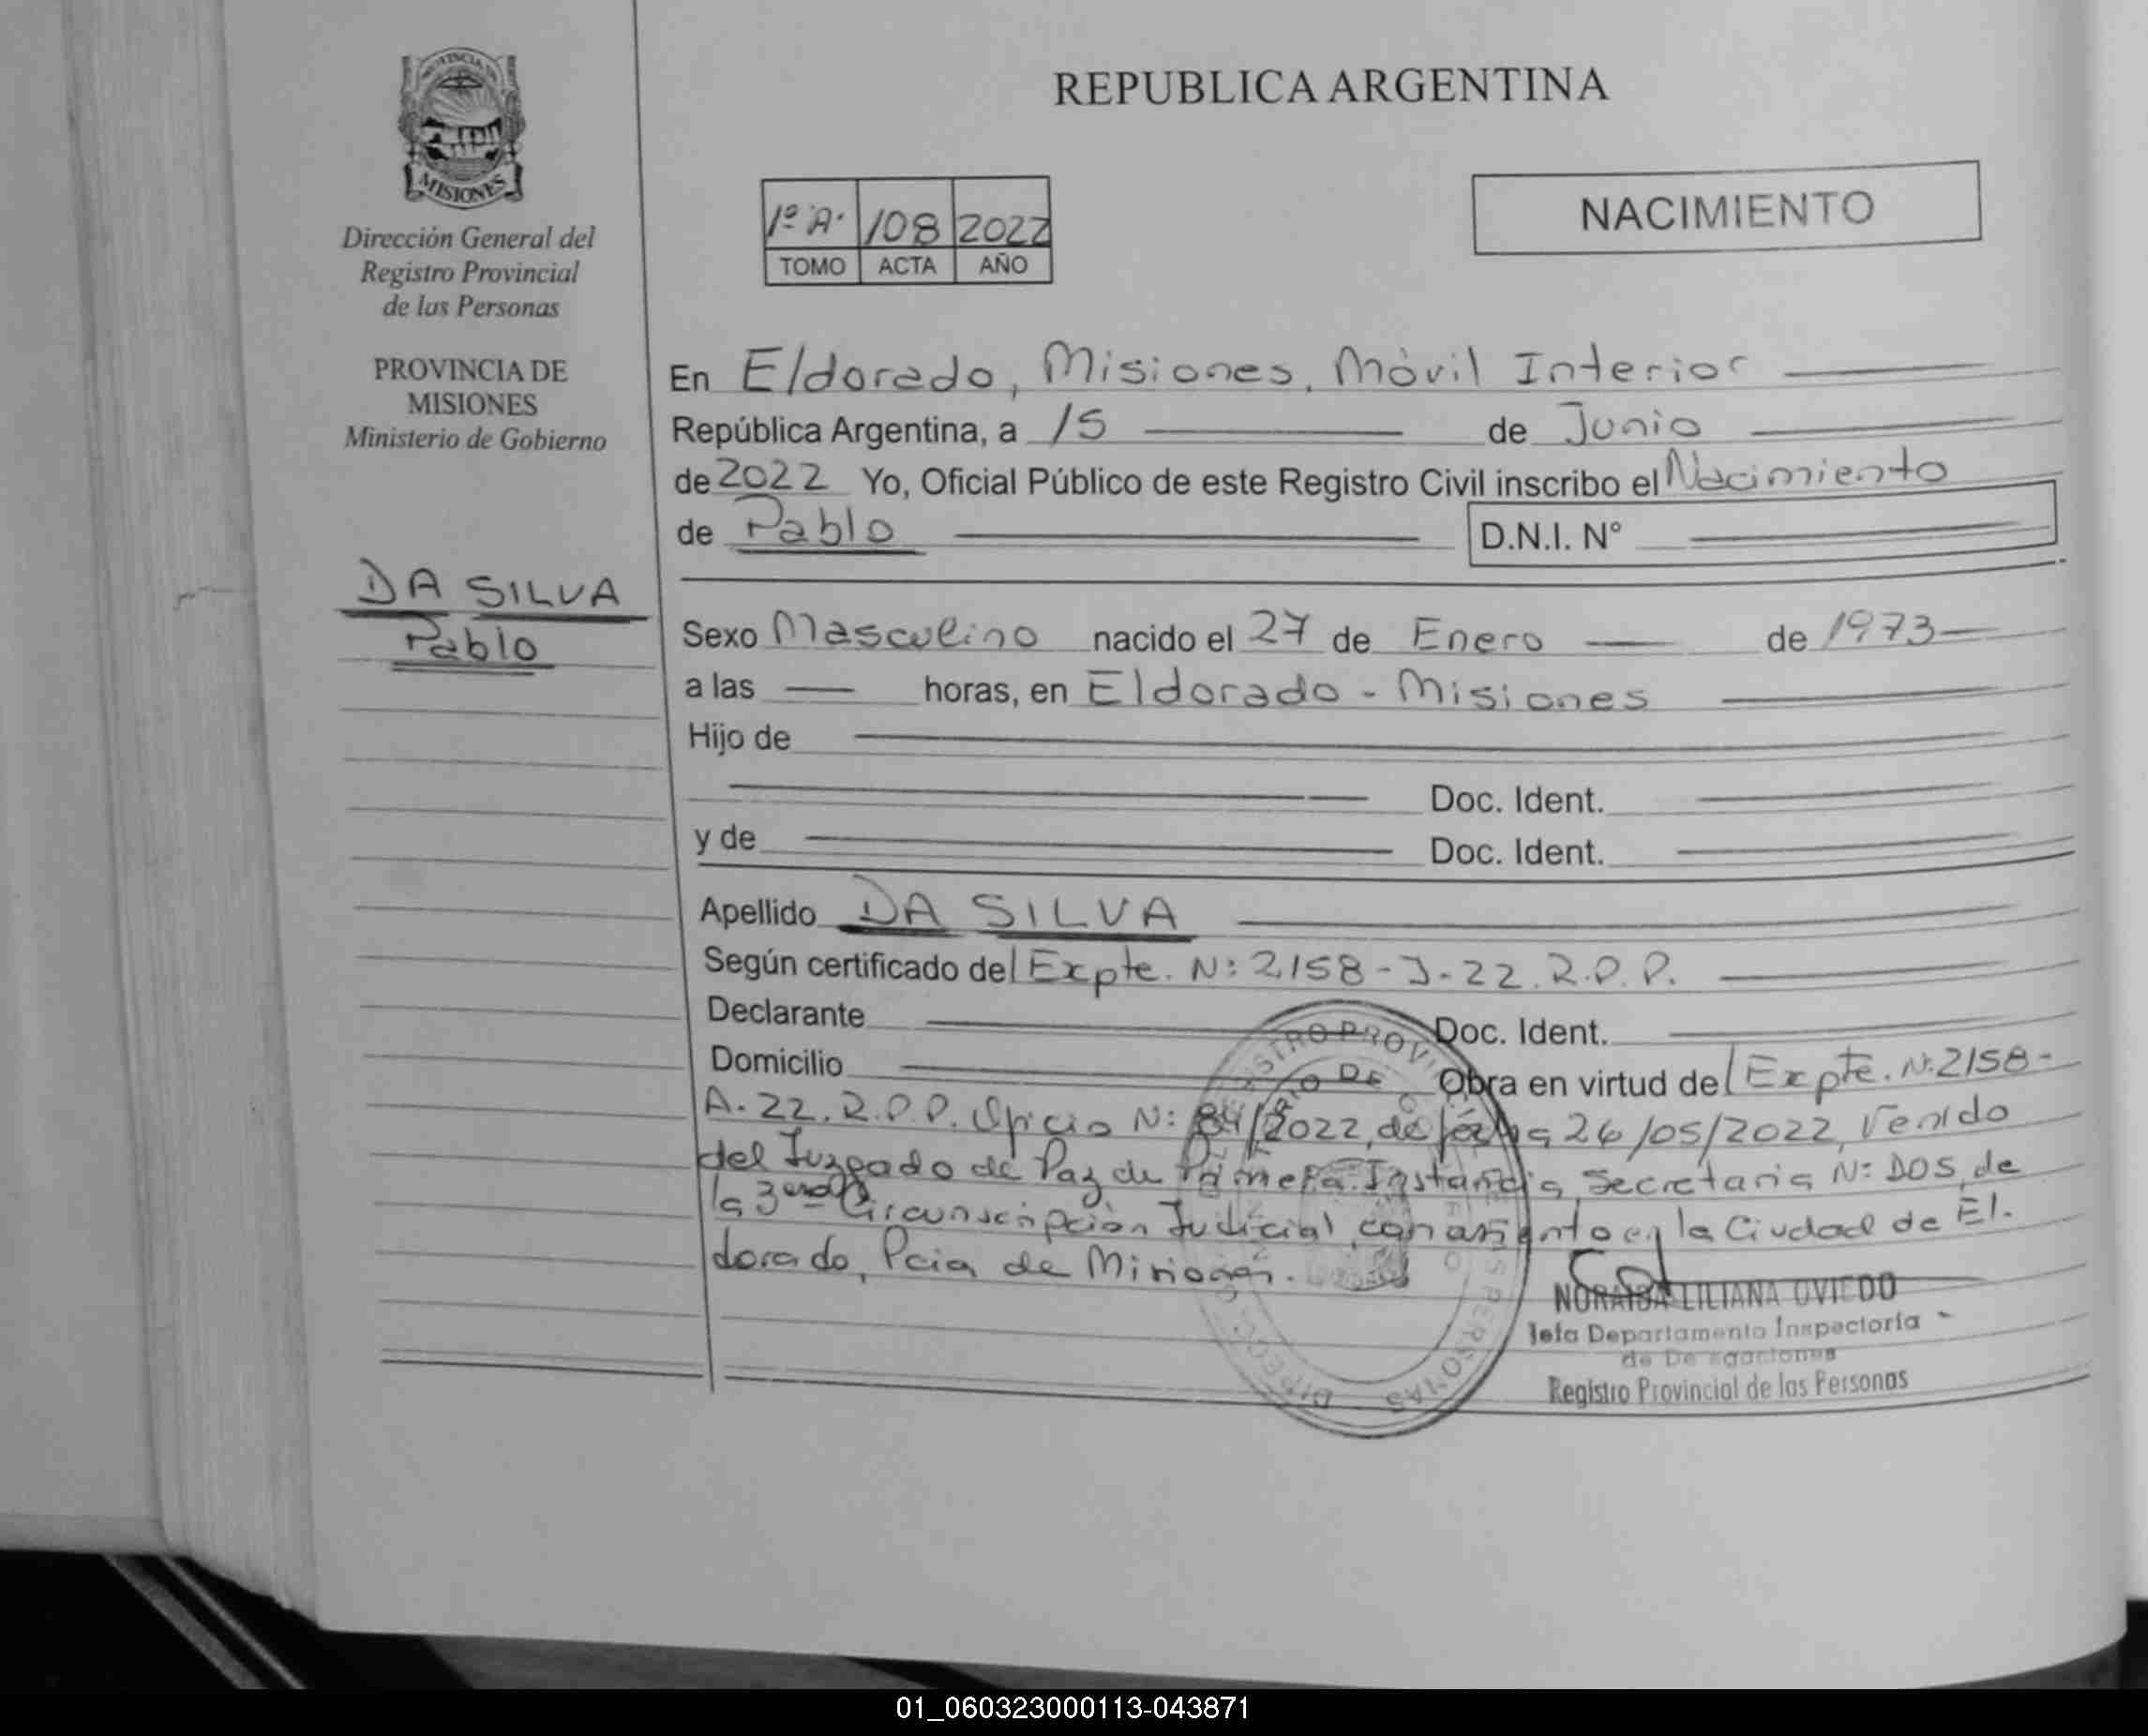 REPUBLICA ARGENTINA
MISIONES
Dirección General del
Registro Provincial
de las Personas
PROVINCIA DE
MISIONES
Ministerio de Gobierno
DA SILVA
Pablo
1º A. 108 2022
TOMO ACTA AÑO
NACIMIENTO
En Eldorado, Misiones, Móvil Interior
República Argentina, a 15 de Junio
de 2022 Yo, Oficial Público de este Registro Civil inscribo el Nacimiento
de Pablo D.N.I. N°
Sexo Masculino nacido el 27 de Enero de 1973
a las horas, en Eldorado - Misiones
Hijo de
Doc. Ident.
y de Doc. Ident.
Apellido DA SILVA
Según certificado del Expte. N: 2158-J-22. R.P.P.
Declarante Doc. Ident.
Domicilio Obra en virtud del Expte. N: 2158-
A-22. R.P.P. Oficio N: 84/2022, de fecha 26/05/2022, Venido
del Juzgado de Paz de Primera Instancia, Secretaria N: DOS, de
la 3era Circunscripción Judicial, con asiento en la Ciudad de El-
dorado, Pcia de Misiones.
NORAIDA LILIANA OVIEDO
Jefa Departamento Inspectoría
de Delegaciones
Registro Provincial de las Personas
01_060323000113-043871